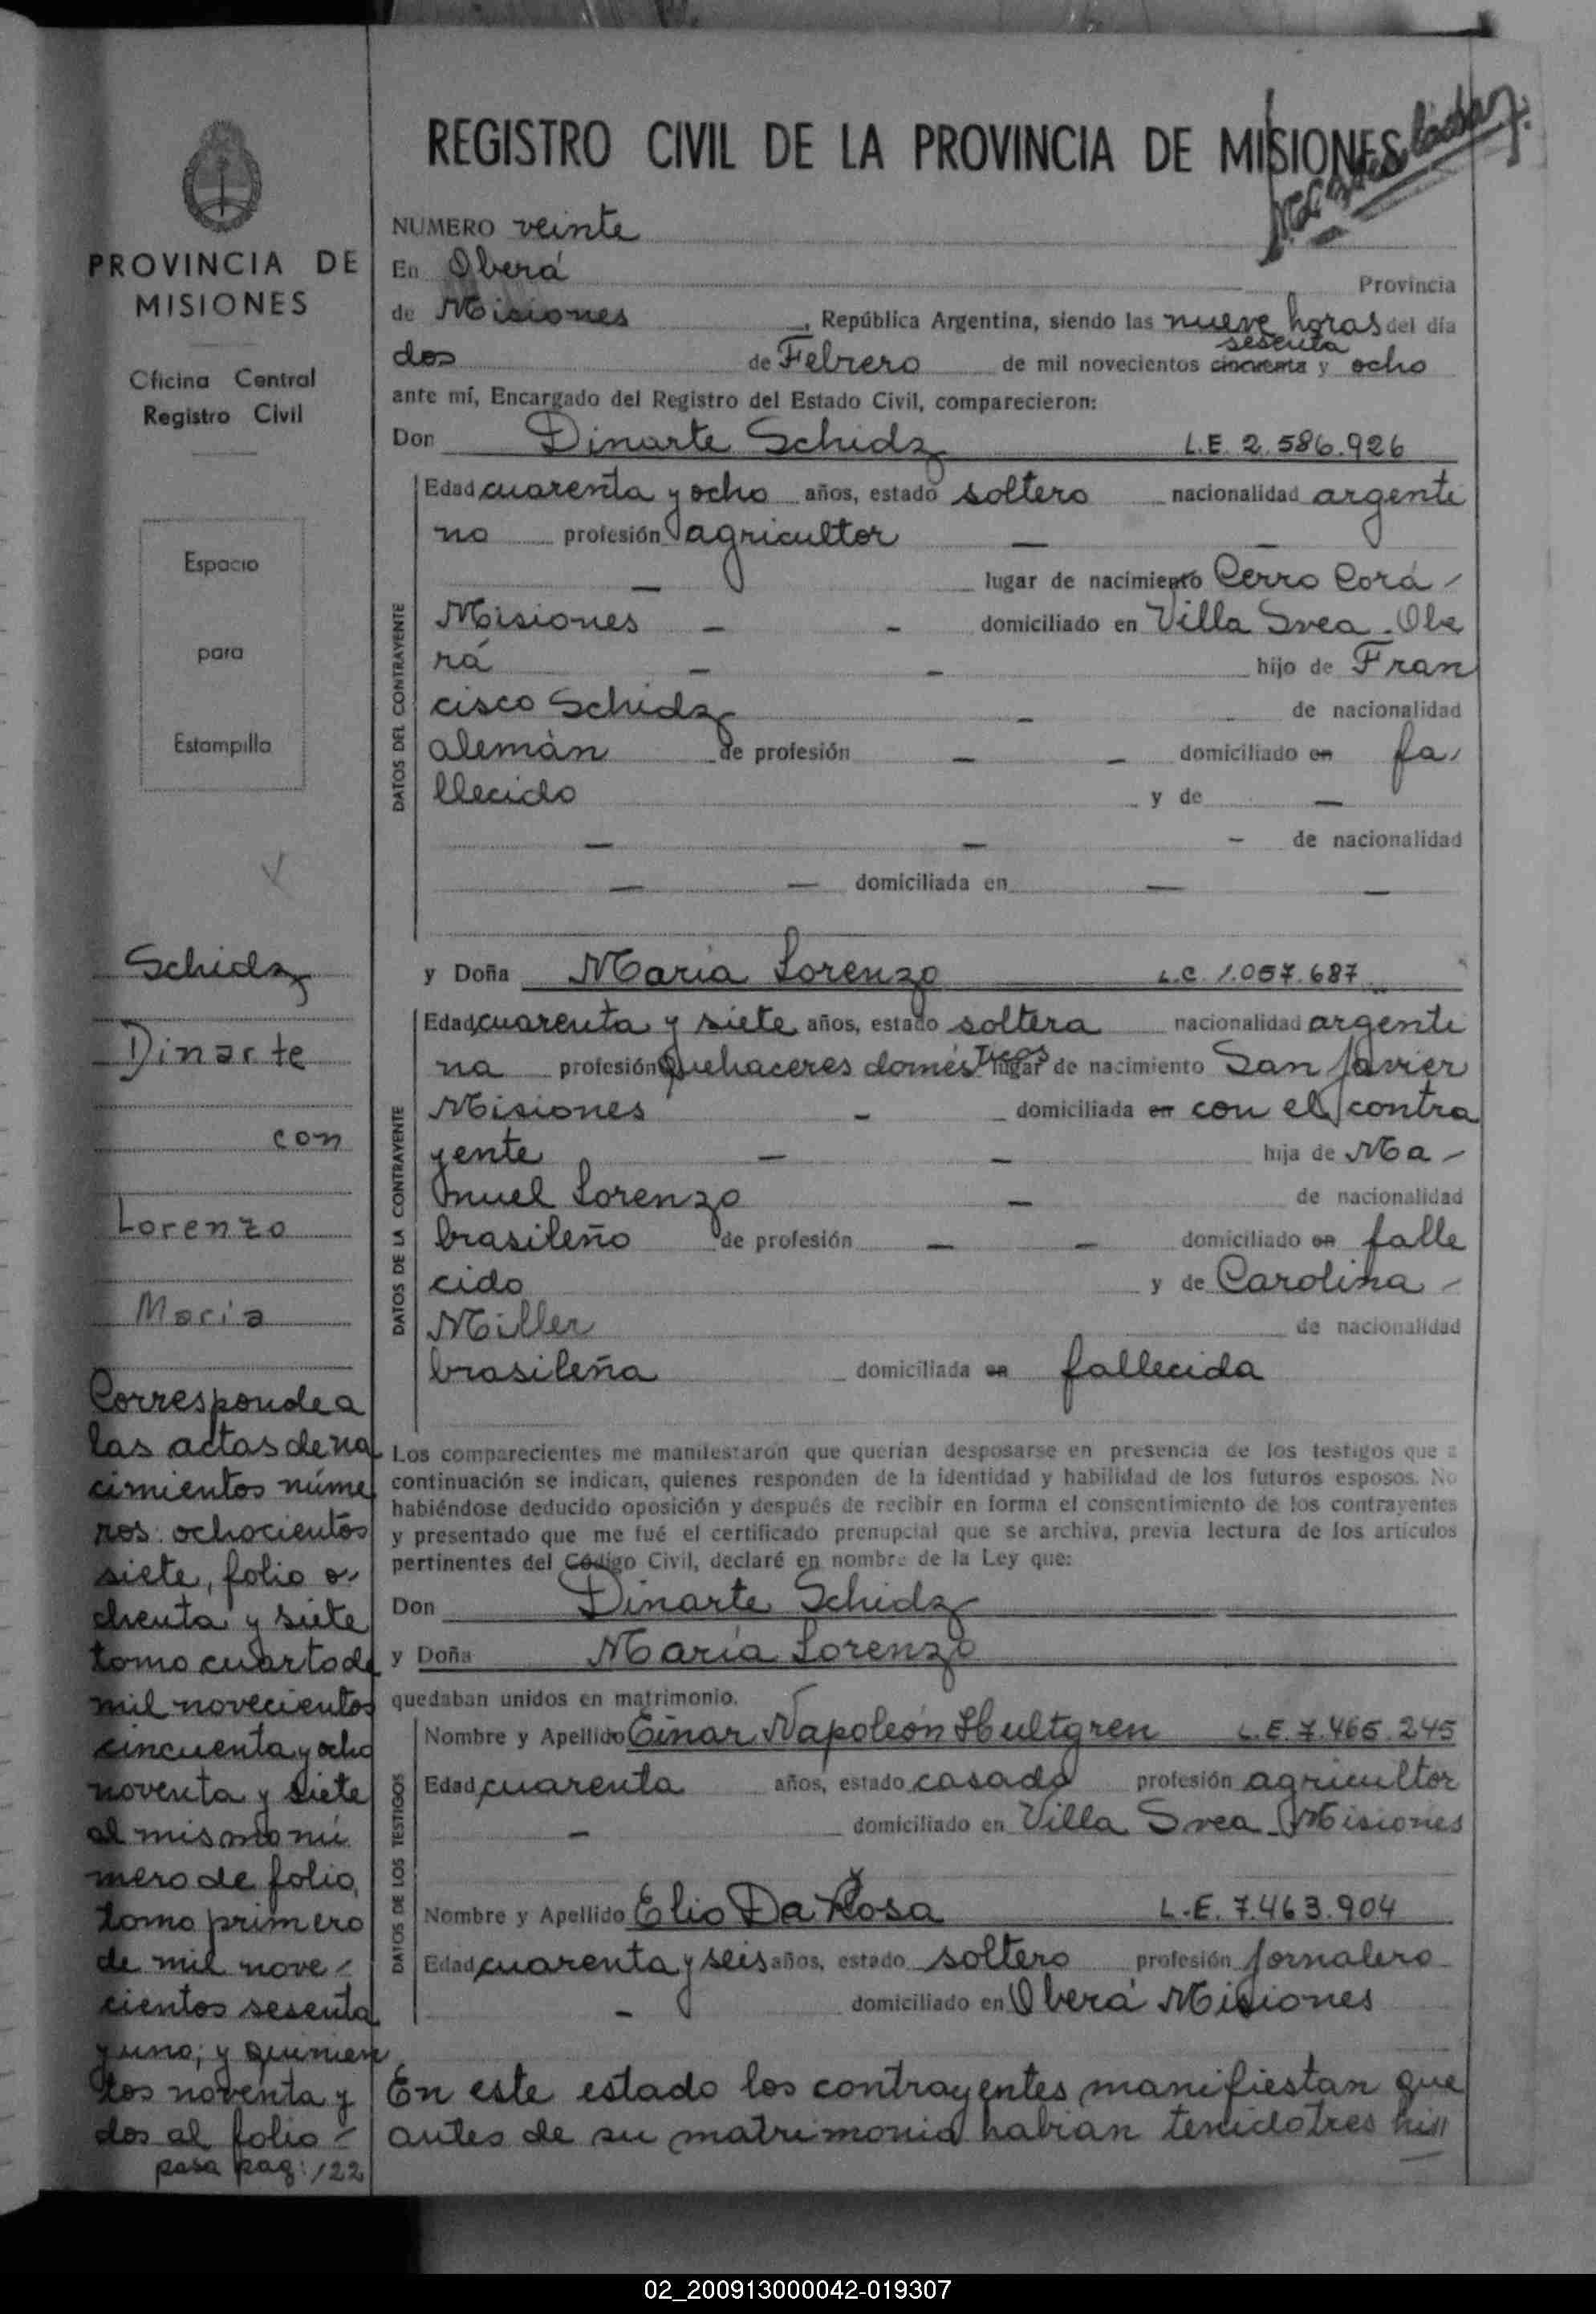 REGISTRO CIVIL DE LA PROVINCIA DE MISIONES
NUMERO veinte
En Oberá Provincia
de Misiones, República Argentina, siendo las nueve horas del día
sesenta
dos de Febrero de mil novecientos cincuenta y ocho
ante mí, Encargado del Registro del Estado Civil, comparecieron:
Don Dinarte Schidz L.E. 2.586.926
DATOS DEL CONTRAYENTE
Edad cuarenta y ocho años, estado soltero nacionalidad argenti
no profesión agricultor —
— lugar de nacimiento Cerro Corá -
Misiones - - domiciliado en Villa Svea - Obe
rá - - hijo de Fran
cisco Schidz - de nacionalidad
alemán de profesión - - domiciliado en fa-
llecido y de -
- - - de nacionalidad
- - domiciliada en - -
y Doña María Lorenzo L.C. 1.057.687
DATOS DE LA CONTRAYENTE
Edad cuarenta y siete años, estado soltera nacionalidad argenti
na profesión Quehaceres domésticos lugar de nacimiento San Javier
Misiones - domiciliada en con el contra
yente - - hija de Ma-
nuel Lorenzo - de nacionalidad
brasileño de profesión - - domiciliado en falle
cido y de Carolina -
Miller de nacionalidad
brasileña domiciliada en fallecida
Los comparecientes me manifestaron que querían desposarse en presencia de los testigos que a
continuación se indican, quienes responden de la identidad y habilidad de los futuros esposos. No
habiéndose deducido oposición y después de recibir en forma el consentimiento de los contrayentes
y presentado que me fué el certificado prenupcial que se archiva, previa lectura de los artículos
pertinentes del Código Civil, declaré en nombre de la Ley que:
Don Dinarte Schidz
y Doña María Lorenzo
quedaban unidos en matrimonio.
DATOS DE LOS TESTIGOS
Nombre y Apellido Einar Napoleón Hultgren L.E. 7.465.245
Edad cuarenta años, estado casado profesión agricultor
- domiciliado en Villa Svea - Misiones
Nombre y Apellido Elio Da Rosa L.E. 7.463.904
Edad cuarenta y seis años, estado soltero profesión jornalero
- domiciliado en Oberá Misiones
En este estado los contrayentes manifiestan que
antes de su matrimonio habian tenido tres hi"
PROVINCIA DE
MISIONES
Oficina Central
Registro Civil
Espacio
para
Estampilla
Schidz
Dinarte
con
Lorenzo
María
Corresponde a
las actas de na
cimientos núme
ros: ochocientos
siete, folio o-
chenta y siete
tomo cuarto de
mil novecientos
cincuenta y ocho
noventa y siete
al mismo nú
mero de folio,
tomo primero
de mil nove-
cientos sesenta
y uno; y quinien
tos noventa y
dos al folio -
pasa pag: 122
02_200913000042-019307